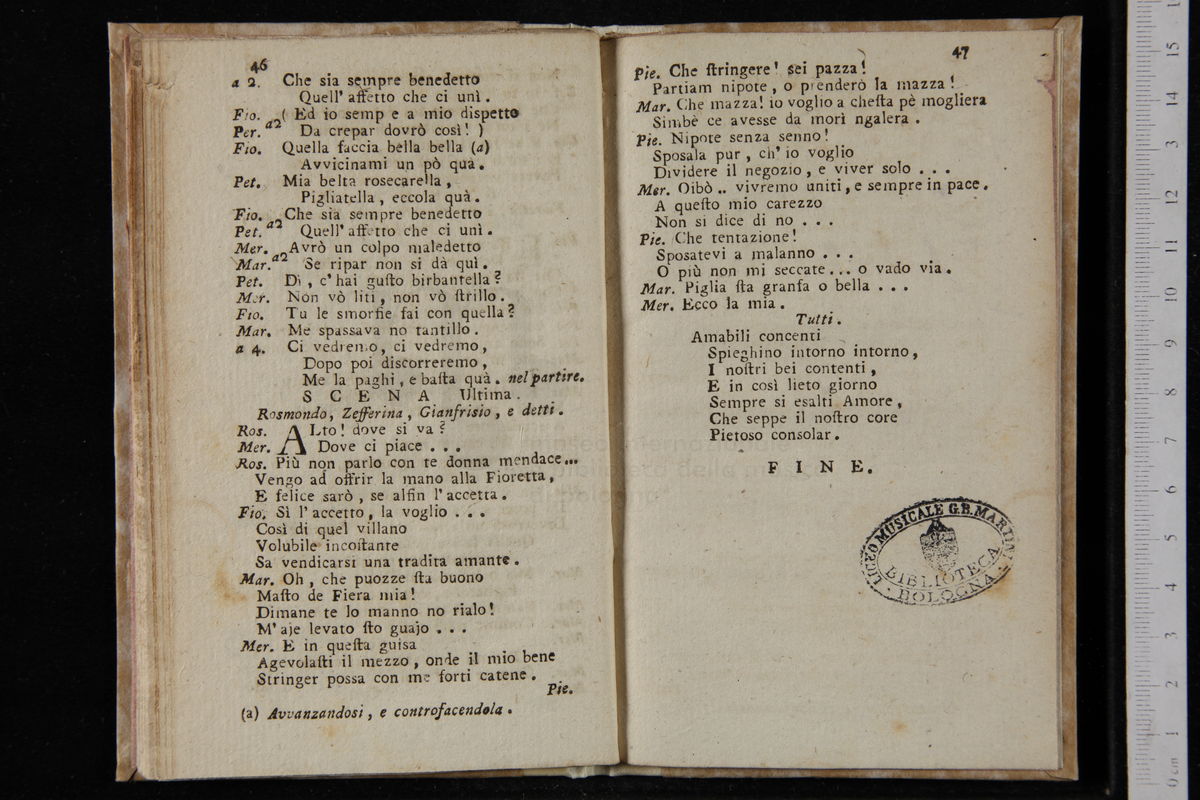 46
a 2. Che sia sempre benedetto
Quell' affetto che ci unì.
Fio. a2 ( Ed io semp e a mio dispetto
Per. Da crepar dovrò così! )
Fio. Quella faccia bella bella (a)
Avvicinami un pò quà.
Pet. Mia belta rosecarella,
Pigliatella, eccola quà.
Fio. a2 Che sia sempre benedetto
Pet. Quell' affetto che ci unì.
Mer. a2 Avrò un colpo maledetto
Mar. Se ripar non si dà quì.
Pet. Dì, c' hai gusto birbantella?
Mer. Non vò liti, non vò strillo.
Fio. Tu le smorfie fai con quella?
Mar. Me spassava no tantillo.
a 4. Ci vedremo, ci vedremo,
Dopo poi discorreremo,
Me la paghi, e basta quà. nel partire.
SCENA Ultima.
Rosmondo, Zefferina, Gianfrisio, e detti.
Ros. ALto! dove si va?
Mer. Dove ci piace . . .
Ros. Più non parlo con te donna mendace...
Vengo ad offrir la mano alla Fioretta,
E felice sarò, se alfin l' accetta.
Fio. Sì l' accetto, la voglio . . .
Così di quel villano
Volubile incostante
Sa vendicarsi una tradita amante.
Mar. Oh, che puozze sta buono
Masto de Fiera mia!
Dimane te lo manno no rialo!
M' aje levato sto guajo . . .
Mer. E in questa guisa
Agevolasti il mezzo, onde il mio bene
Stringer possa con me forti catene.
Pie.
(a) Avvanzandosi, e controfacendola.
47
Pie. Che stringere! sei pazza!
Partiam nipote, o prenderò la mazza!
Mar. Che mazza! io voglio a chesta pè mogliera
Simbè ce avesse da morì ngalera.
Pie. Nipote senza senno!
Sposala pur, ch' io voglio
Dividere il negozio, e viver solo . . .
Mer. Oibò .. vivremo uniti, e sempre in pace.
A questo mio carezzo
Non si dice di no . . .
Pie. Che tentazione!
Sposatevi a malanno . . .
O più non mi seccate... o vado via.
Mar. Piglia sta granfa o bella . . .
Mer. Ecco la mia.
Tutti.
Amabili concenti
Spieghino intorno intorno,
I nostri bei contenti,
E in così lieto giorno
Sempre si esalti Amore,
Che seppe il nostro core
Pietoso consolar.
FINE.
LICEO MUSICALE G.B. MARTINI
BIBLIOTECA
BOLOGNA